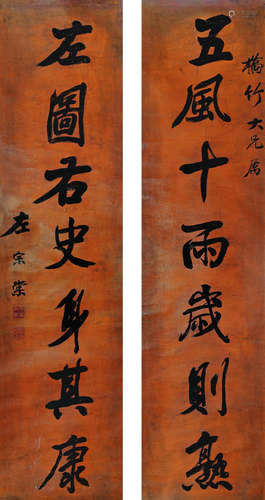 橋竹大兄屬
五風十雨歲則熟
左圖右史身其康
左宗棠